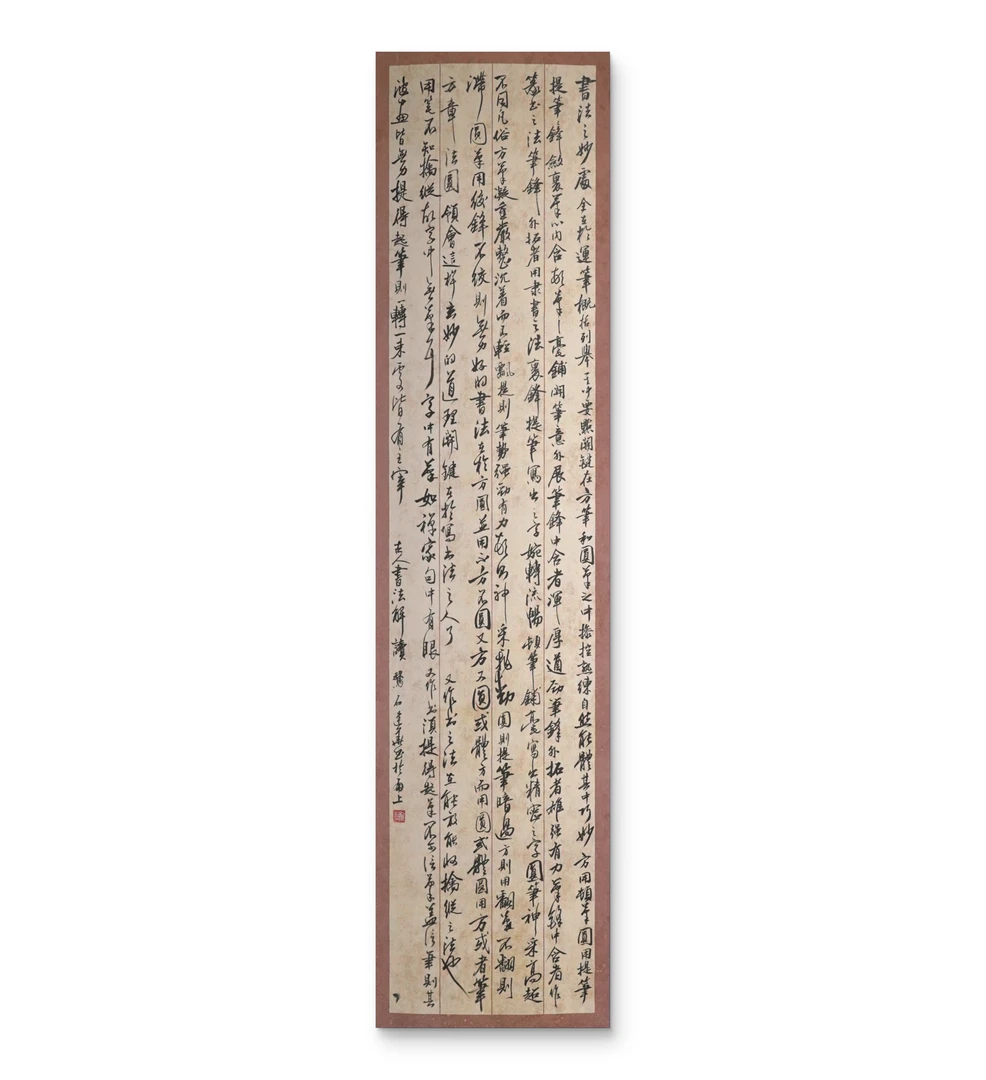 書法之妙處全在於運筆概括列舉其中要點關鍵在方筆和圓筆之中操控熟練自然能體其中巧妙方用頓筆圓用提筆
提筆鋒斂裹筆心內含頓筆之毫鋪開筆意外展筆鋒中含者渾厚遒勁筆鋒外拓者雄強有力筆鋒中含者作
篆書之法筆鋒外拓者用隸書之法裹鋒提筆寫出之字婉轉流暢頓筆鋪毫寫出精密之字圓筆神采高超
不同凡俗方筆凝重嚴整沉着而不輕飄提則筆勢強勁有力頓則神采飛動圓則提筆暗過方則用翻筆不翻則
滯圓筆用絞鋒不絞則無力好的書法在於方圓並用不方不圓又方又圓或體方而用圓或體圓用方或者筆
方章法圓領會這樣玄妙的道理關鍵在於寫書法之人了 又作書之法在能放能收擒縱之法也
用筆不知擒縱故字中無筆耳字中有筆如禪家句中有眼又作書須提得起筆不可信筆蓋信筆則其
波畫皆無力提得起筆則一轉一束處皆有主宰 古人書法解讀